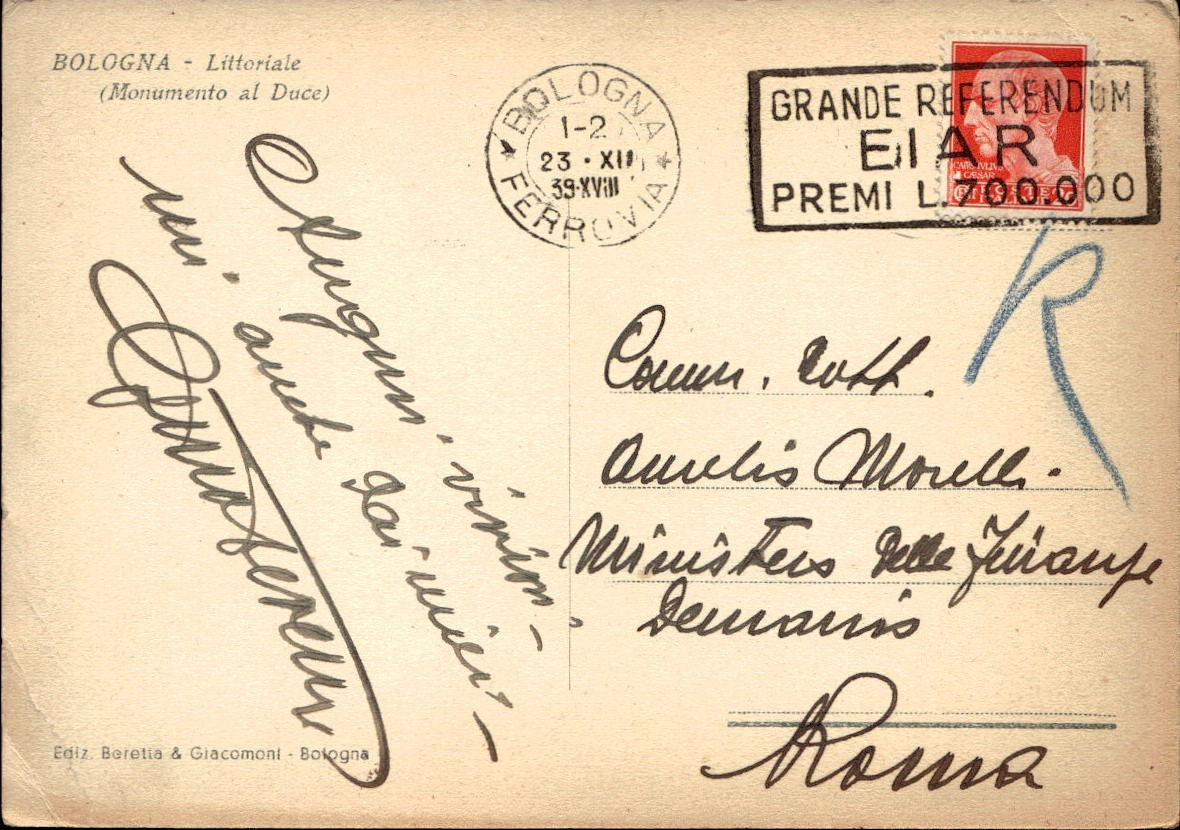 BOLOGNA - Littoriale
(Monumento al Duce)
BOLOGNA
1-2
23 · XII
39·XVIII
FERROVIA
GRANDE REFERENDUM
EIAR
PREMI L.700.000
Auguri vivissimi
anche dai miei
Comm. Dott.
Aurelio Morelli
Ministero delle Finanze
Demanio
Roma
Ediz. Beretta & Giacomoni - Bologna